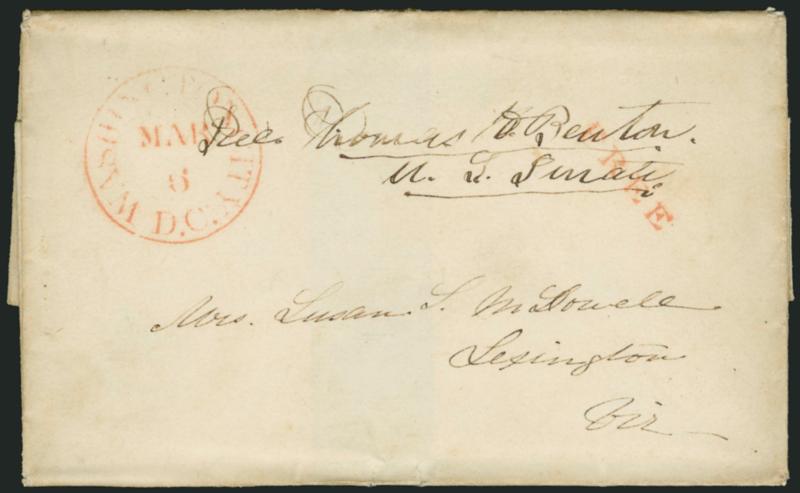 WASHINGTON CITY
MAR
6
D.C.
Free Thomas H. Benton.
U. S. Senate
FREE
Mrs. Susan S. McDowell
Lexington
Vir